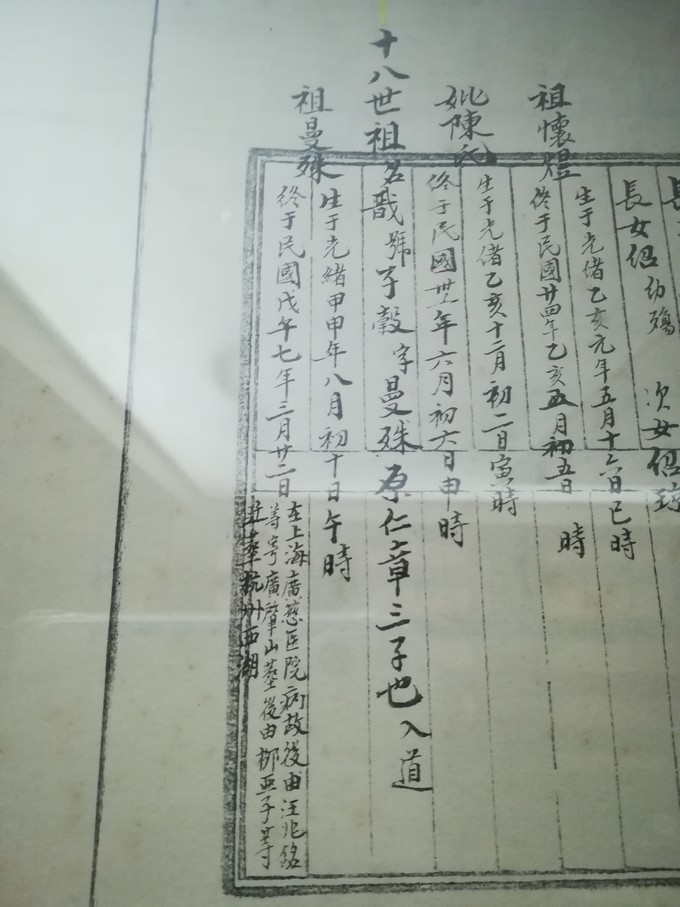 長女 幼殤 次女
生于光緒乙亥元年五月十六日巳時
祖懷煜
終于民國廿四年乙亥五月初五日 時
生于光緒乙亥十二月初二日寅時
妣陳氏
終于民國卅年六月初六日申時
十八世祖名戩號子穀字曼殊原仁章三子也入道
生于光緒甲申年八月初十日午時
祖曼殊
終于民國戊午七年三月廿二日
在上海廣慈医院病故後由汪兆銘
等寄廣肇山墓後由柳亞子等
迁葬杭州西湖